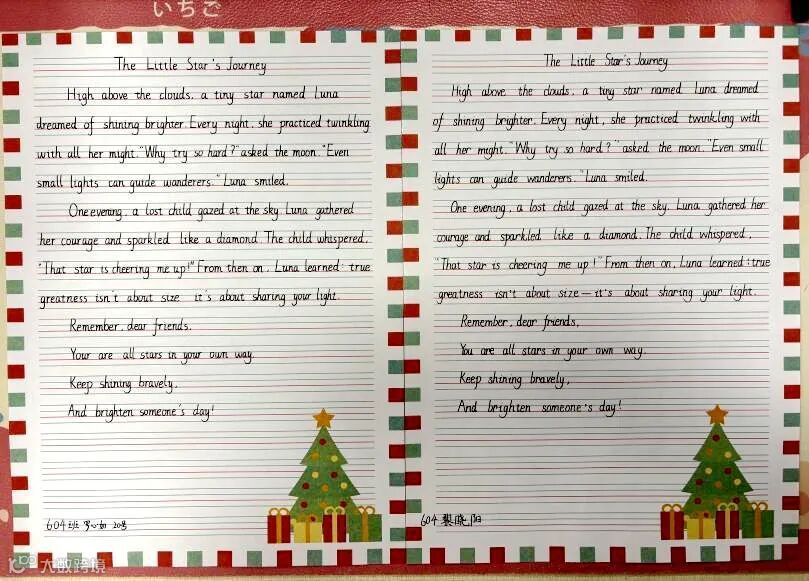 いちご
The Little Star's Journey
High above the clouds, a tiny star named Luna
dreamed of shining brighter. Every night, she practiced twinkling
with all her might. "Why try so hard?" asked the moon. "Even
small lights can guide wanderers." Luna smiled.
One evening, a lost child gazed at the sky. Luna gathered
her courage and sparkled like a diamond. The child whispered,
"That star is cheering me up!" From then on, Luna learned: true
greatness isn't about size it's about sharing your light.
Remember, dear friends,
Your are all stars in your own way.
Keep shining bravely,
And brighten someone's day!
604班 20号
The Little Star's Journey
High above the clouds, a tiny star named Luna dreamed
of shining brighter. Every night, she practiced twinkling with
all her might. "Why try so hard?" asked the moon. "Even small
lights can guide wanderers." Luna smiled.
One evening, a lost child gazed at the sky. Luna gathered her
courage and sparkled like a diamond. The child whispered,
"That star is cheering me up!" From then on, Luna learned: true
greatness isn't about size — it's about sharing your light.
Remember, dear friends,
You are all stars in your own way.
Keep shining bravely,
And brighten someone's day!
604 黎晓阳
大数跨境